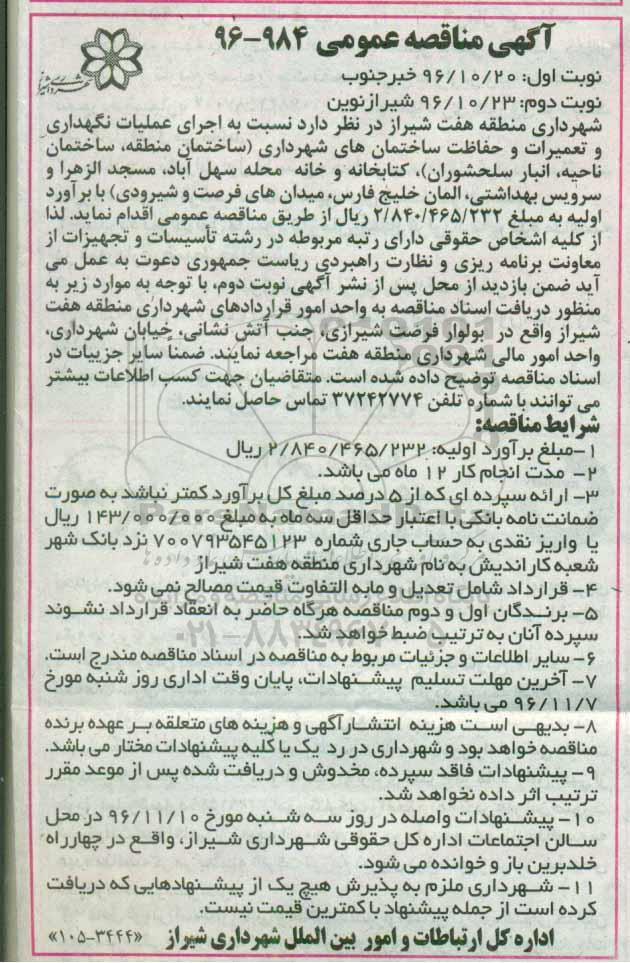 آگهی مناقصه عمومی ۹۸۴-۹۶
نوبت اول: ۹۶/۱۰/۲۰ خبرجنوب
نوبت دوم: ۹۶/۱۰/۲۳ شیرازنوین
شهرداری منطقه هفت شیراز در نظر دارد نسبت به اجرای عملیات نگهداری
و تعمیرات و حفاظت ساختمان های شهرداری (ساختمان منطقه، ساختمان
ناحیه، انبار سلحشوران)، کتابخانه و خانه محله سهل آباد، مسجد الزهرا و
سرویس بهداشتی، المان خلیج فارس، میدان های فرصت و شیرودی) با برآورد
اولیه به مبلغ ۲/۸۴۰/۴۶۵/۲۳۲ ریال از طریق مناقصه عمومی اقدام نماید. لذا
از کلیه اشخاص حقوقی دارای رتبه مربوطه در رشته تأسیسات و تجهیزات از
معاونت برنامه ریزی و نظارت راهبردی ریاست جمهوری دعوت به عمل می
آید ضمن بازدید از محل پس از نشر آگهی نوبت دوم، با توجه به موارد زیر به
منظور دریافت اسناد مناقصه به واحد امور قراردادهای شهرداری منطقه هفت
شیراز واقع در بولوار فرصت شیرازی، جنب آتش نشانی، خیابان شهرداری،
واحد امور مالی شهرداری منطقه هفت مراجعه نمایند. ضمناً سایر جزییات در
اسناد مناقصه توضیح داده شده است. متقاضیان جهت کسب اطلاعات بیشتر
می توانند با شماره تلفن ۳۷۲۴۲۷۷۴ تماس حاصل نمایند.
شرایط مناقصه:
۱-مبلغ برآورد اولیه: ۲/۸۴۰/۴۶۵/۲۳۲ ریال
۲- مدت انجام کار ۱۲ ماه می باشد.
۳- ارائه سپرده ای که از ۵ درصد مبلغ کل برآورد کمتر نباشد به صورت
ضمانت نامه بانکی با اعتبار حداقل سه ماه به مبلغ ۱۴۳/۰۰۰/۰۰۰ ریال
یا واریز نقدی به حساب جاری شماره ۷۰۰۷۹۳۵۴۵۱۲۳ نزد بانک شهر
شعبه کاراندیش به نام شهرداری منطقه هفت شیراز
۴- قرارداد شامل تعدیل و مابه التفاوت قیمت مصالح نمی شود.
۵- برندگان اول و دوم مناقصه هرگاه حاضر به انعقاد قرارداد نشوند
سپرده آنان به ترتیب ضبط خواهد شد.
۶- سایر اطلاعات و جزئیات مربوط به مناقصه در اسناد مناقصه مندرج است.
۷- آخرین مهلت تسلیم پیشنهادات، پایان وقت اداری روز شنبه مورخ
۹۶/۱۱/۷ می باشد.
۸- بدیهی است هزینه انتشارآگهی و هزینه های متعلقه بر عهده برنده
مناقصه خواهد بود و شهرداری در رد یک یا کلیه پیشنهادات مختار می باشد.
۹- پیشنهادات فاقد سپرده، مخدوش و دریافت شده پس از موعد مقرر
ترتیب اثر داده نخواهد شد.
۱۰- پیشنهادات واصله در روز سه شنبه مورخ ۹۶/۱۱/۱۰ در محل
سالن اجتماعات اداره کل حقوقی شهرداری شیراز، واقع در چهارراه
خلدبرین باز و خوانده می شود.
۱۱- شهرداری ملزم به پذیرش هیچ یک از پیشنهادهایی که دریافت
کرده است از جمله پیشنهاد با کمترین قیمت نیست.
اداره کل ارتباطات و امور بین الملل شهرداری شیراز «۳۴۴۴-۱۰۵»